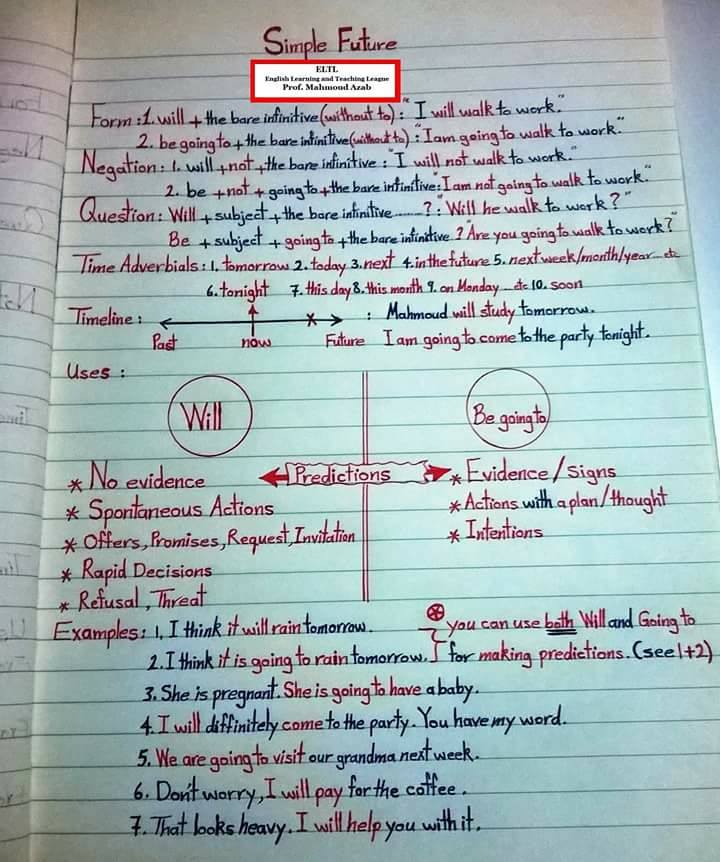 Simple Future
ELTL
English Learning and Teaching League
Prof. Mahmoud Azab
Form: 1. will + the bare infinitive (without to): "I will walk to work."
2. be going to + the bare infinitive (without to): "I am going to walk to work."
Negation: 1. will + not + the bare infinitive: "I will not walk to work."
2. be + not + going to + the bare infinitive: "I am not going to walk to work."
Question: Will + subject + the bare infinitive ........? : "Will he walk to work?"
Be + subject + going to + the bare infinitive ? "Are you going to walk to work?"
Time Adverbials: 1. tomorrow 2. today 3. next 4. in the future 5. next week/month/year... etc
6. tonight 7. this day 8. this month 9. on Monday... etc 10. soon
Timeline: x : Mahmoud will study tomorrow.
Past now Future I am going to come to the party tonight.
Uses:
Will Be going to
Predictions
* No evidence * Evidence/Signs
* Spontaneous Actions * Actions with a plan/thought
* Offers, Promises, Request, Invitation * Intentions
* Rapid Decisions
* Refusal, Threat
Examples: 1. I think it will rain tomorrow. * you can use both Will and Going to
2. I think it is going to rain tomorrow. for making predictions. (see 1+2)
3. She is pregnant. She is going to have a baby.
4. I will diffinitely come to the party. You have my word.
5. We are going to visit our grandma next week.
6. Don't worry, I will pay for the coffee.
7. That looks heavy. I will help you with it.